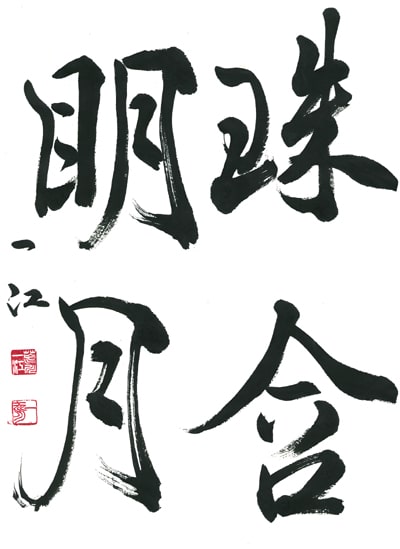 珠含
明月
一江